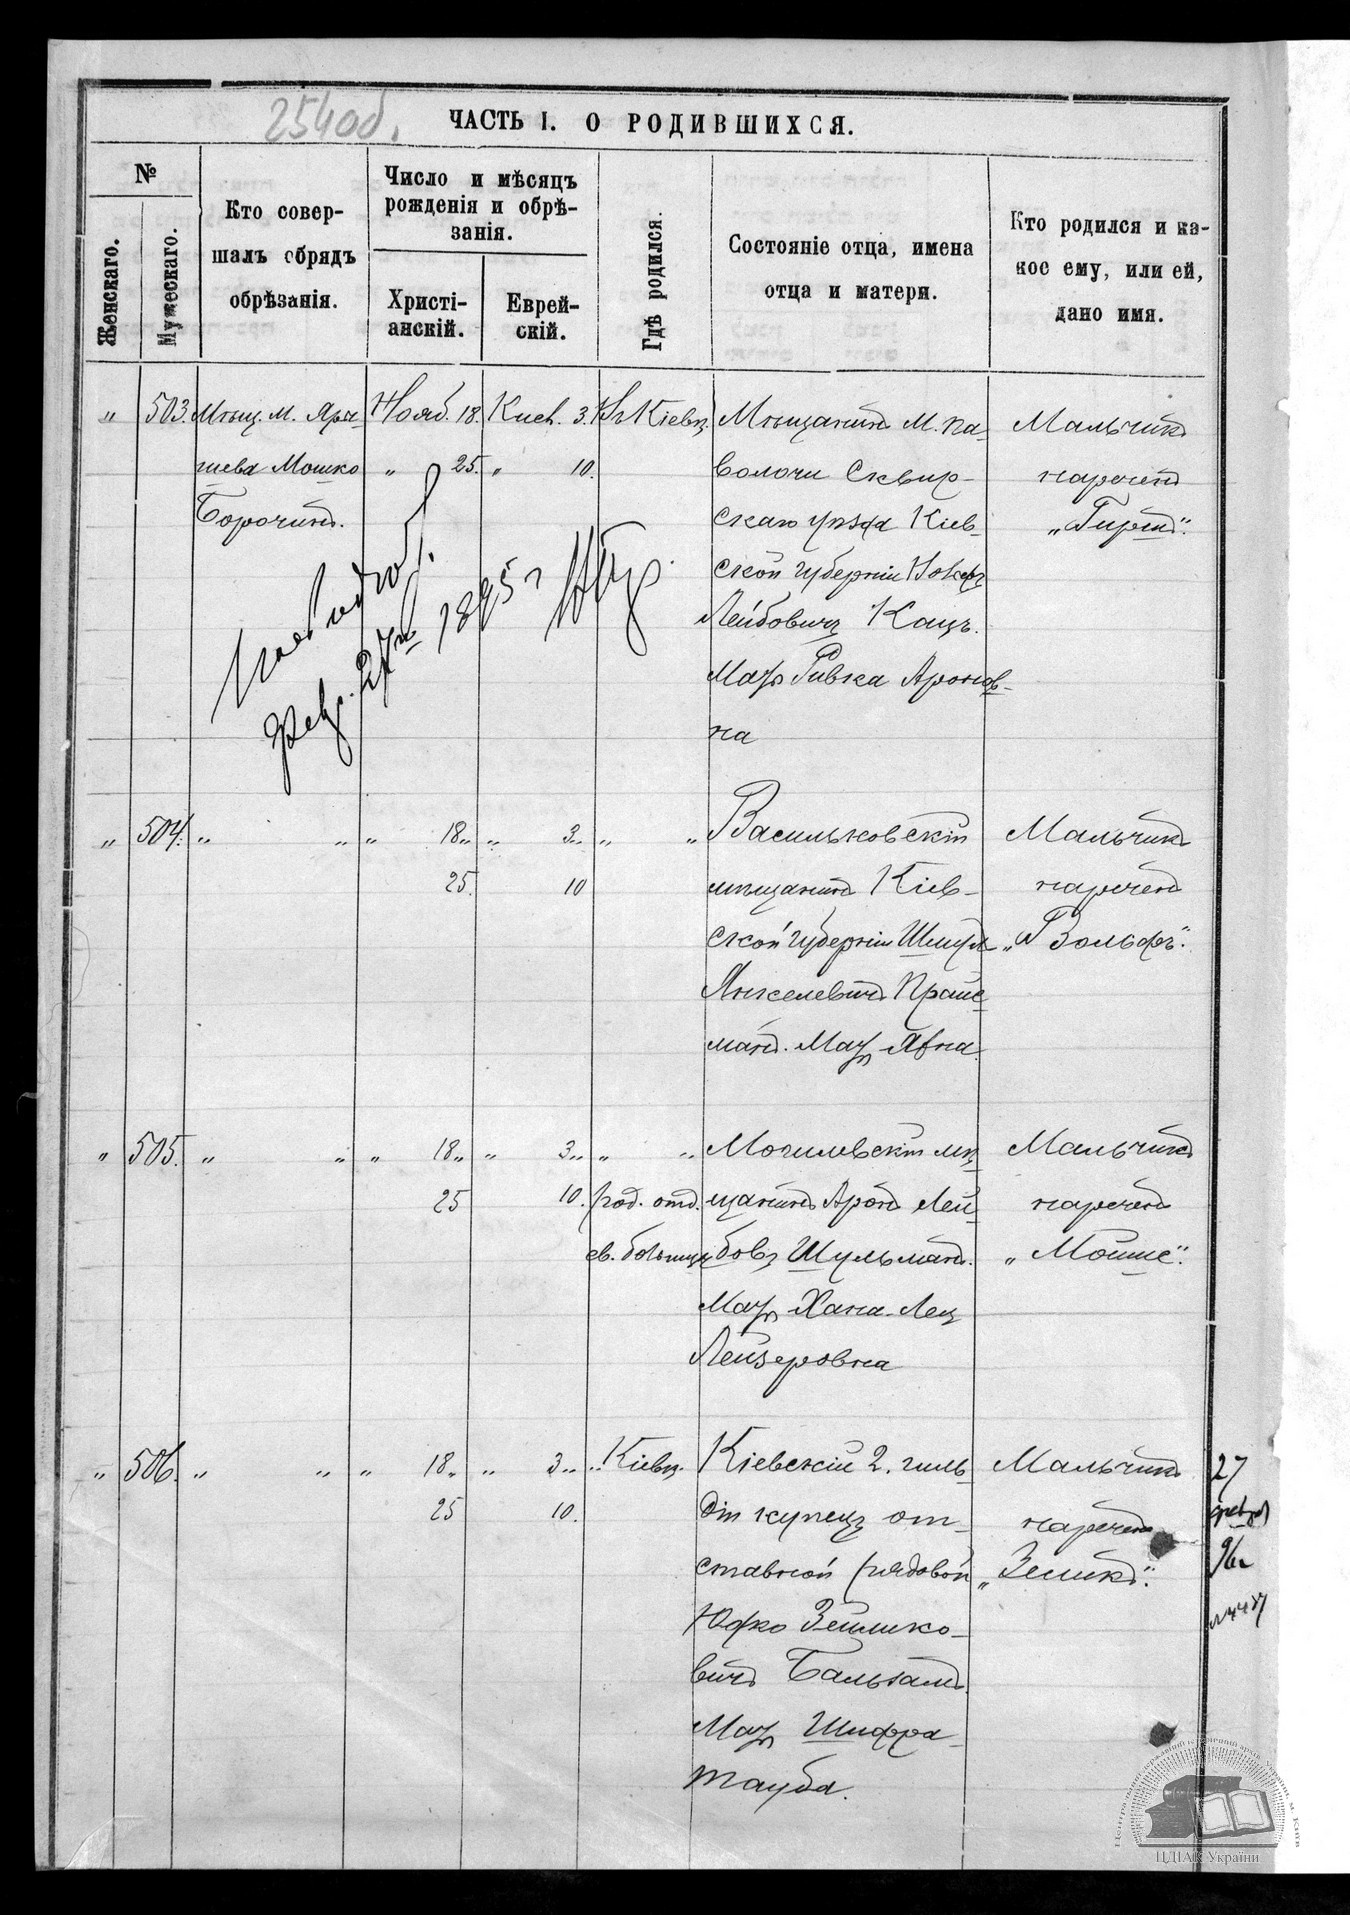 254об.
ЧАСТЬ I. О РОДИВШИХСЯ.
№
Женскаго.
Мужескаго.
Кто совер-
шалъ обрядъ
обрѣзанія.
Число и мѣсяцъ
рожденія и обрѣ-
занія.
Христі-
анскій.
Еврей-
скій.
Гдѣ родился.
Состояніе отца, имена
отца и матери.
Кто родился и ка-
кое ему, или ей,
дано имя.
„ 503. Мѣщ. м. Яры-
шева Мошко
Борочинъ.
Нояб. 18.
„ 25.
Кисл. 3.
„ 10.
Въ Кіевѣ.
Мѣщанинъ м. Па-
волочи Сквир-
скаго уѣзда Кіев-
ской губерніи
Лейбовичъ Кацъ.
Мать Ривка Аронов-
на
Мальчикъ
нареченъ
„Гиршъ“.
февр. 27го 1895 г
„ 504. „ „
„ 18 „
25.
„ 3 „
10
„ „
Васильковскій
мѣщанинъ Кіев-
ской губерніи Шмуль
Янкелевичъ Прайс-
манъ. Мать Хвна.
Мальчикъ
нареченъ
„Вольфъ“.
„ 505. „ „
„ 18 „
25
„ 3 „
10.
„ „
род. отд.
ев. больницы
Могилевскій мѣ-
щанинъ Аронъ Лей-
бовъ Шульманъ.
Мать Хана-Лея
Лейзеровна
Мальчикъ
нареченъ
„Мойше“.
„ 506. „ „
„ 18 „
25
„ 3 „
10.
„ Кіевѣ.
Кіевскій 2. гиль-
діи купецъ от-
ставной рядовой
Юфко Зейлико-
вичъ Бальзамъ.
Мать Шифра-
Тауба.
Мальчикъ
нареченъ
„Зеликъ“.
27
февр
96г
ЦДІАК України